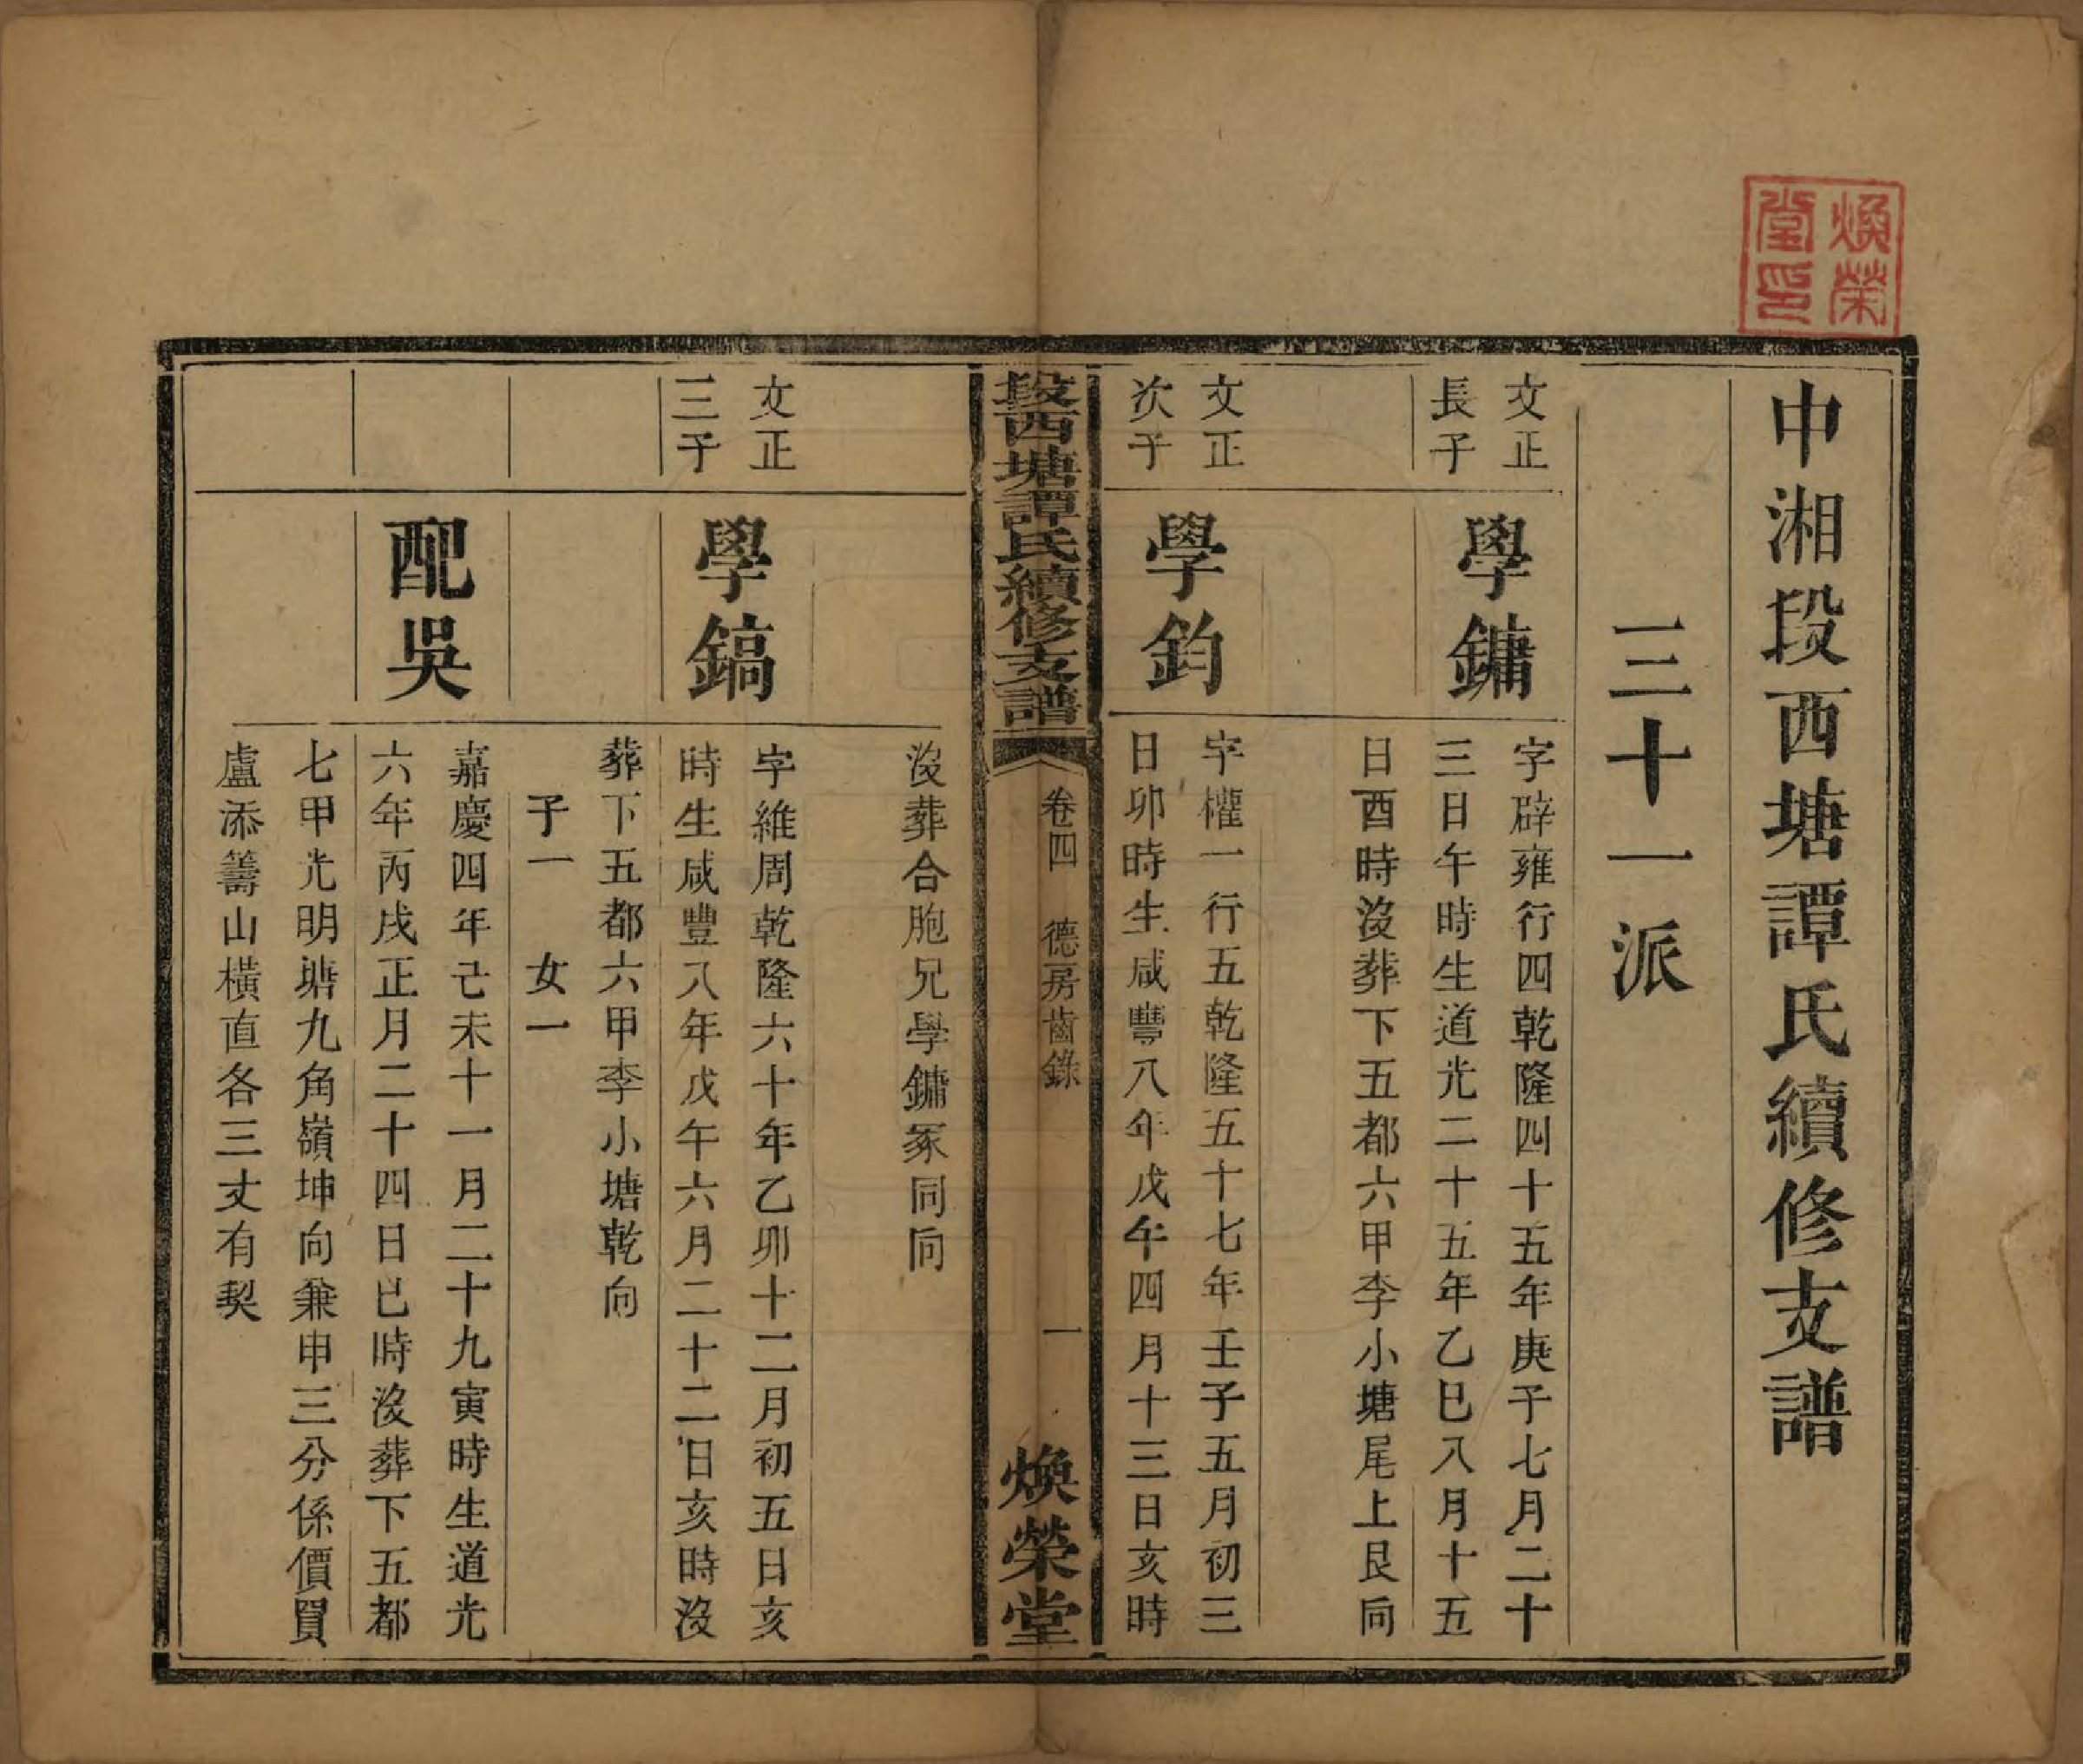 煥榮
堂印
中湘段西塘譚氏續修支譜
三十一派
文正
長子
學鏞
字辟雍行四乾隆四十五年庚子七月二十
三日午時生道光二十五年乙巳八月十五
日酉時沒葬下五都六甲李小塘尾上艮向
文正
次子
學鈞
字權一行五乾隆五十七年壬子五月初三
日卯時生咸豐八年戊午四月十三日亥時
段西塘譚氏續修支譜
卷四 德房齒錄
一
煥榮堂
沒葬合胞兄學鏞冢同向
文正
三子
學鎬
字維周乾隆六十年乙卯十二月初五日亥
時生咸豐八年戊午六月二十二日亥時沒
葬下五都六甲李小塘乾向
子一 女一
配吳
嘉慶四年己未十一月二十九寅時生道光
六年丙戌正月二十四日巳時沒葬下五都
七甲光明塘九角嶺坤向兼申三分係價買
盧添籌山橫直各三丈有契